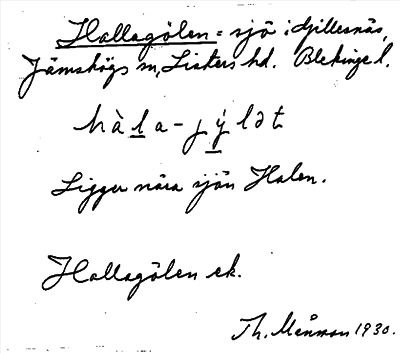 Hallagölen = sjö i Gillesnäs,
Jämshögs sn, Listers hd. Blekinge l.
hàla-jýlət
Ligger nära sjön Halen.
Hallagölen ek.
Th. Månman 1930.